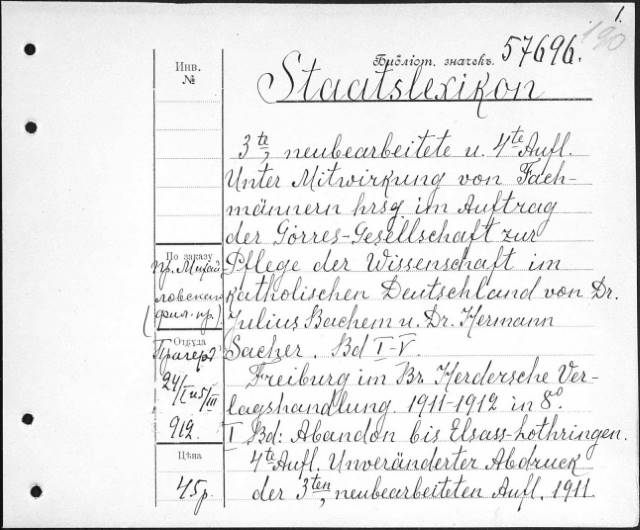 1.
190
Инв.
№
Библіот. значекъ. 57696.
Staatslexikon
3te, neubearbeitete u. 4te Aufl.
Unter Mitwirkung von Fach-
männern hrsg. im Auftrag
der Görres-Gesellschaft zur
Pflege der Wissenschaft im
katholischen Deutschland von Dr.
Julius Bachem u. Dr. Hermann
Sacher. Bd I-V.
Freiburg im Br. Herdersche Ver-
lagshandlung. 1911-1912 in 8°.
I Bd: Abandon bis Elsass-Lothringen.
4te Aufl. Unveränderter Abdruck
der 3ten, neubearbeiteten Aufl. 1911
По заказу
пр. Михай
ловскаго
(фил.-пр.)
Откуда
Прагеръ
24/I и 5/III
912.
Цѣна
45 р.